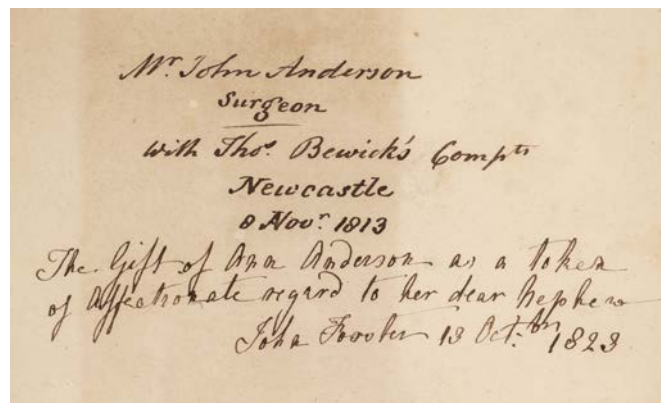 Mr. John Anderson
Surgeon
with Thos. Bewick's Compts
Newcastle
8 Novr. 1813
The Gift of Ann Anderson as a token
of affectionate regard to her dear Nephew
John 13 Octbr. 1823